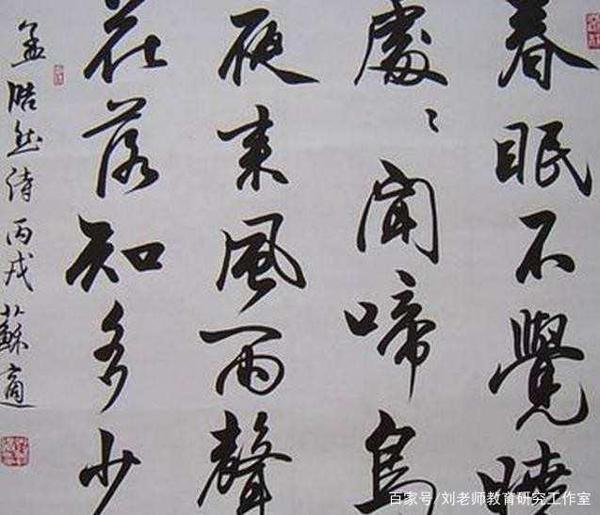 春眠不覺曉
處〻聞啼鳥
夜来風雨聲
花落知多少
孟浩然诗丙戌蘇適
百家号/刘老师教育研究工作室